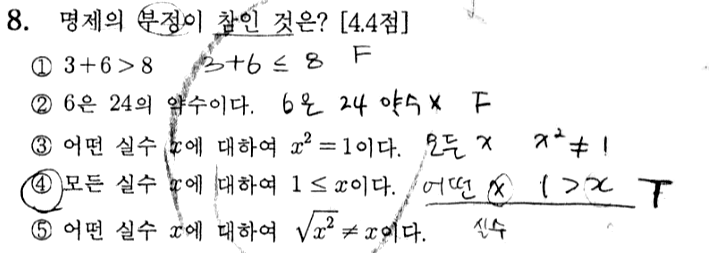 8. 명제의 부정이 참인 것은? [4.4점]
① 3+6>8 3+6 ≤ 8 F
② 6은 24의 약수이다. 6은 24 약수 X F
③ 어떤 실수 x에 대하여 x²=1이다. 모든 x x² ≠ 1
④ 모든 실수 x에 대하여 1≤x이다. 어떤 x 1>x T
⑤ 어떤 실수 x에 대하여 √x² ≠ x이다. 실수